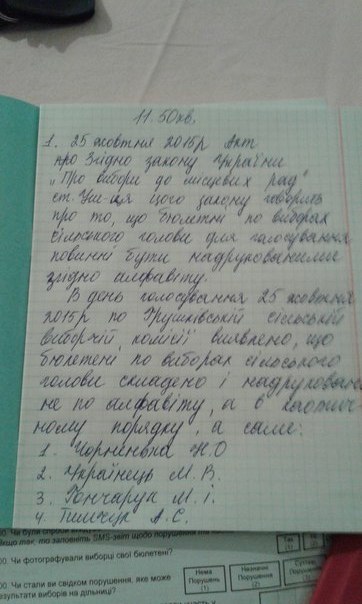 11.50хв.
1. 25 жовтня 2015р Акт
про Згідно закону України
„Про вибори до місцевих рад"
ст. цього закону говорить
про то, що бюлетні по виборах
сільського голови для голосування
повинні бути надрукованими
згідно алфавіту.
В день голосування 25 жовтня
2015р по Грушківській сільській
виборчій комісії виявлено, що
бюлетені по виборах сільського
голови складено і надруковані
не по алфавіту, а в хаотич-
ному порядку, а саме:
1. Чорненька Н.О
2. Українець М.В.
3. Гончарук М.І.
4. Тимчук А.С.
якщо так, то заповніть SMS-звіт щодо порушення
00. Чи фотографували виборці свої бюлетені?
00. Чи стали ви свідком порушення, яке може
результати виборів на дільниці?
Нема
Порушень
(1)
Незначні
Порушення
(2)